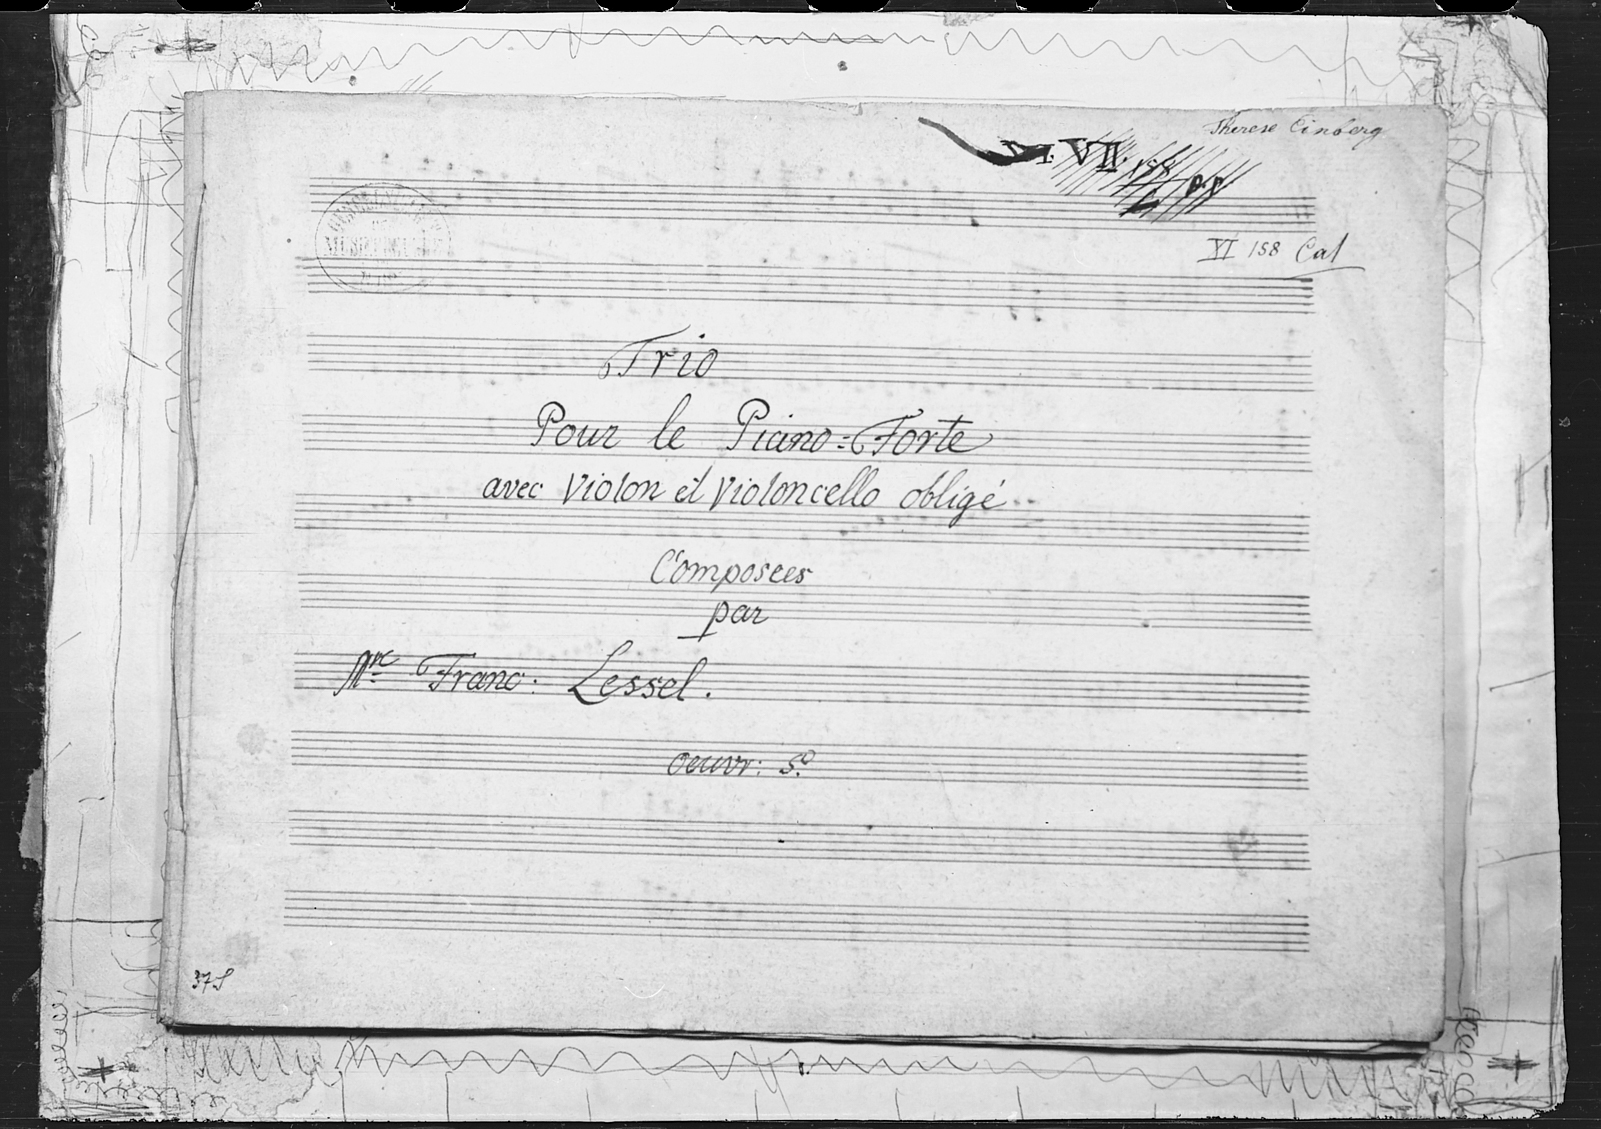 Therese Einberg
VI. VII. 158
p.p.
VI 158 Cal
Trio
Pour le Piano=Forte
avec Violon et Violoncello obligé
Composees
par
Mre Franc: Lessel.
oeuvr: 5º
37S